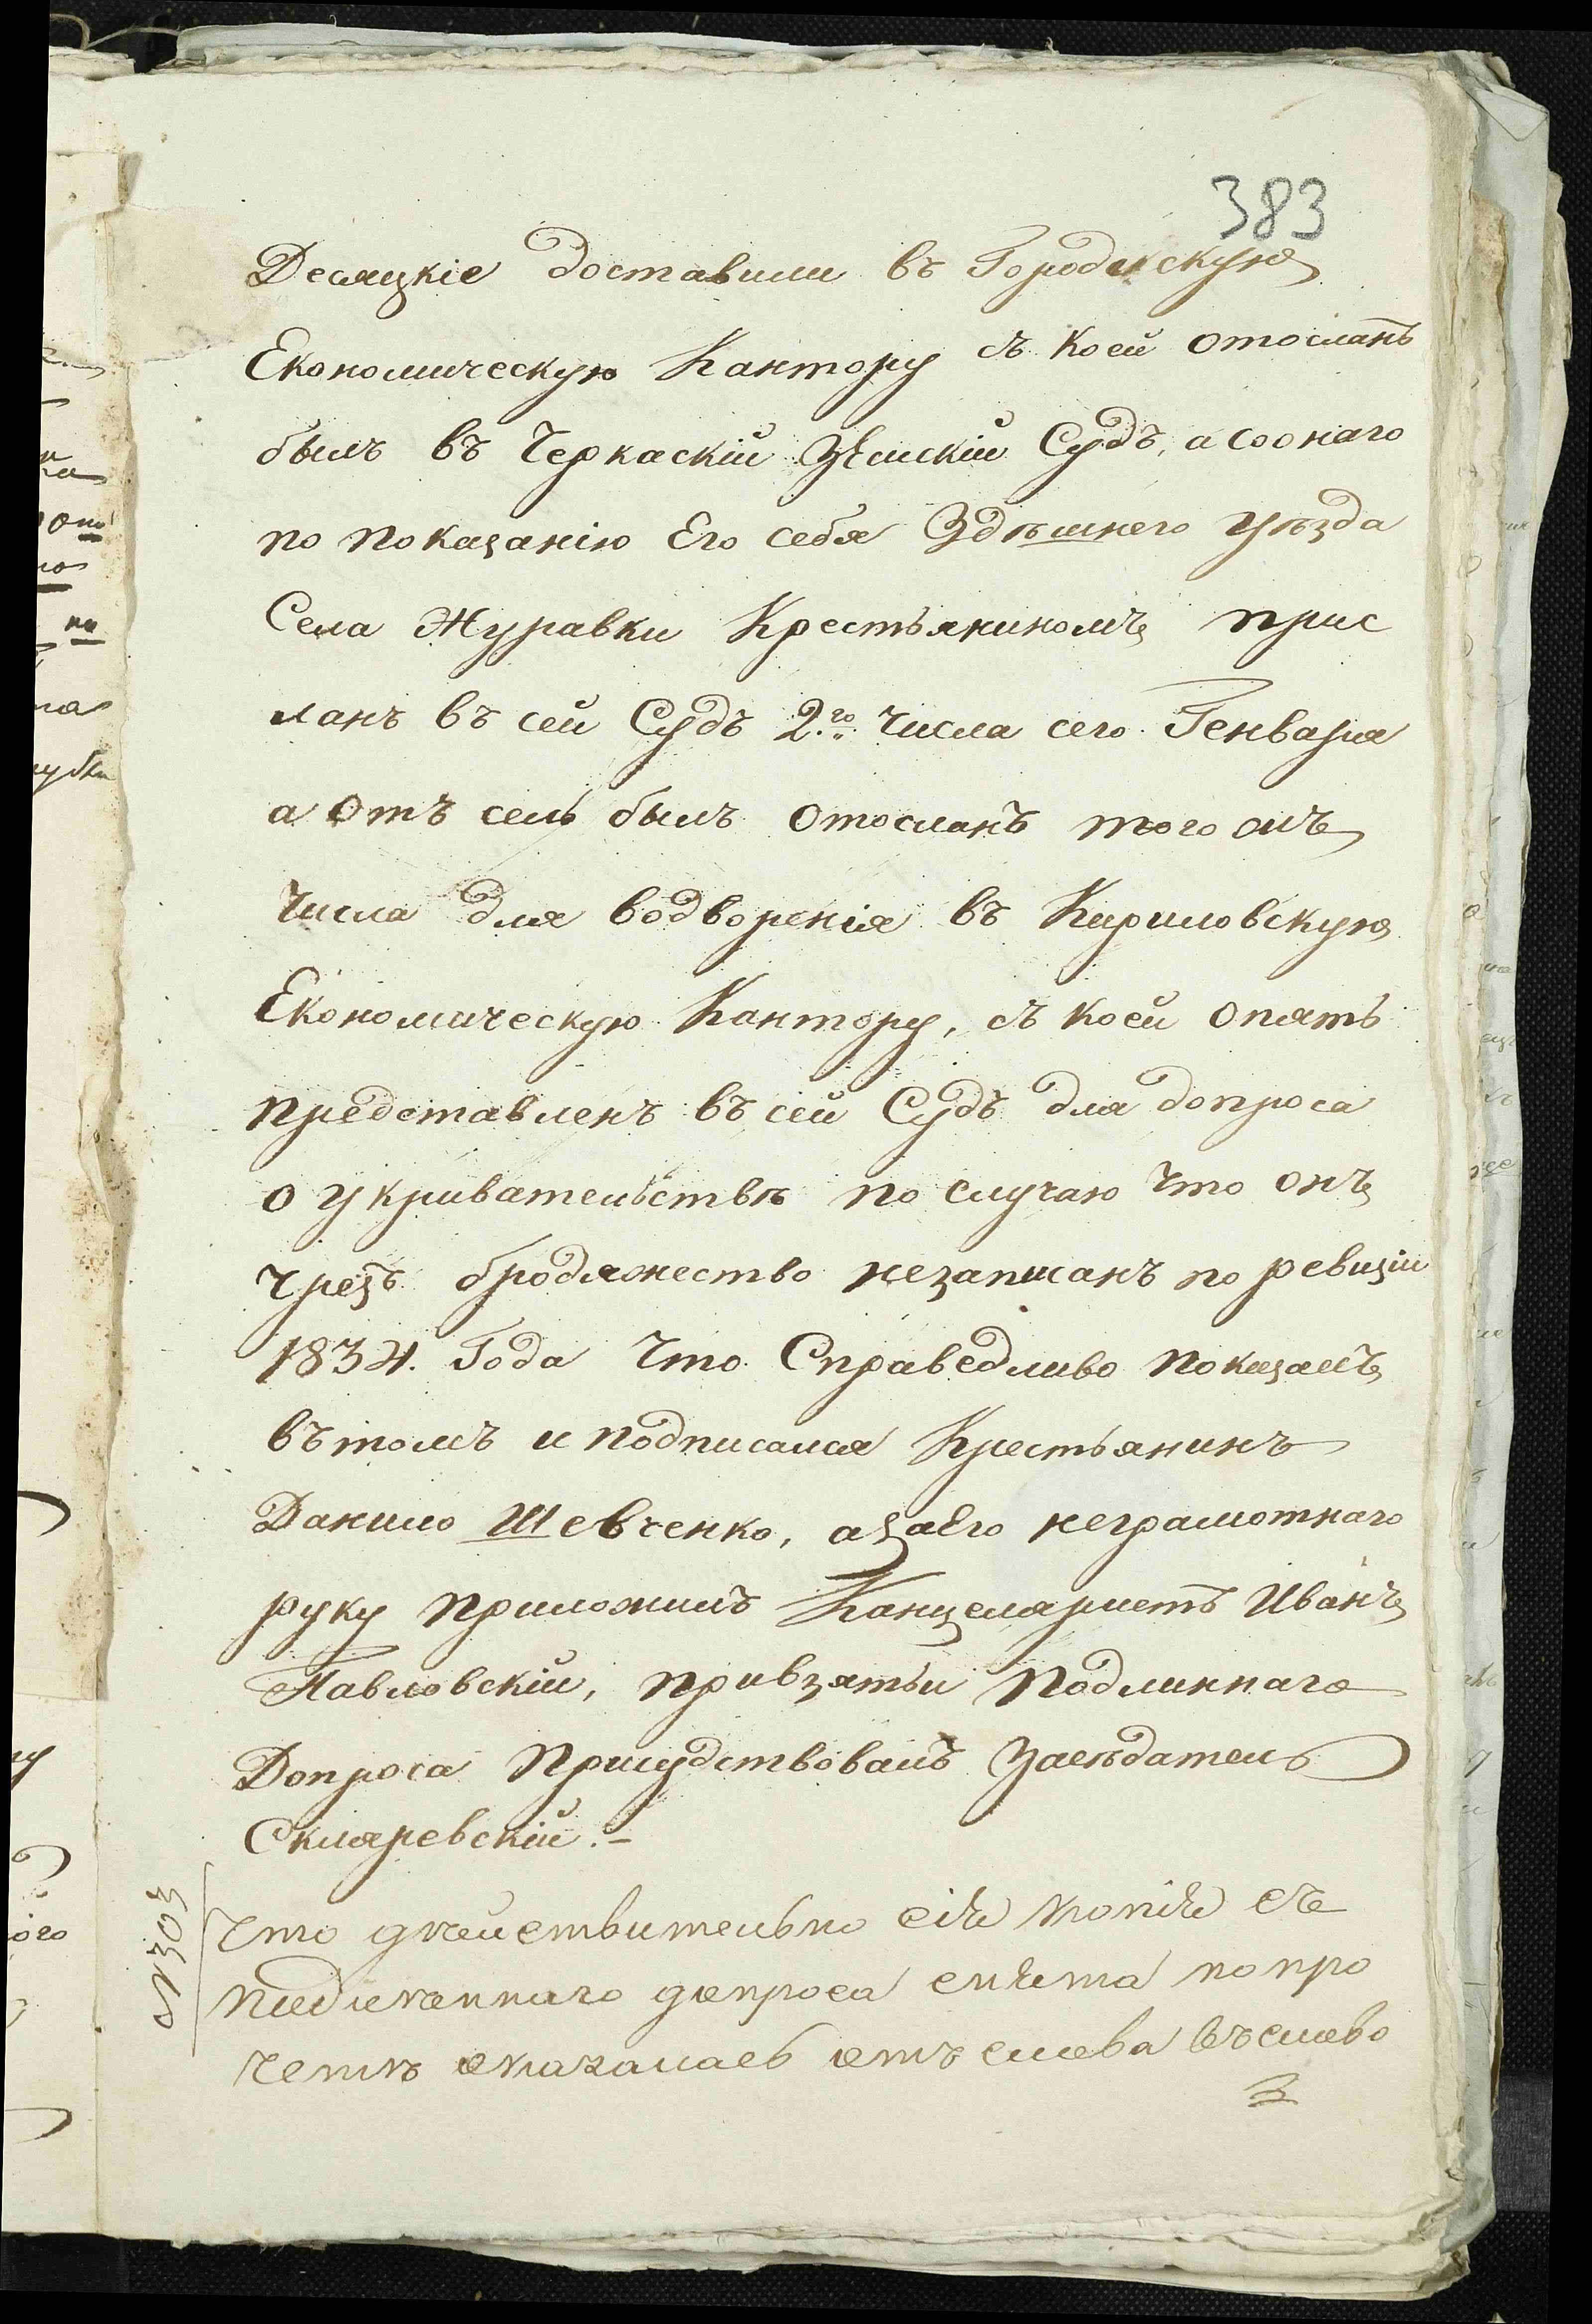 383
Десяцкіе доставили въ Городискую
Економическую Кантору съ коей отосланъ
былъ въ Черкаскій Земскій Судъ, а соонаго
по показанію Его себя Здѣшнего уѣзда
Села Журавки Крестьяниномъ прис
ланъ въ сей Судъ 2.го числа сего Генваря
а отъ сель былъ отосланъ того жъ
числа для водворенія въ Кириловскую
Економическую Кантору, съ коей опять
представленъ въ сей Судъ для допроса
о укривательствѣ по случаю что онъ
чрезъ бродяжество незаписанъ по ревизіи
1834. Года что Справедливо показалъ
въ томъ и подписался Крестьянинъ
Данило Шевченко, а за Его неграмотнаго
руку приложилъ Канцеляристъ Иванъ
Павловскій, при взятьи подлиннаго
Допроса Присудствовалъ Засѣдатель
Скляревскій.-
N303
Что дѣйствительно сія копія съ
подленнаго допроса снята по про
четѣ оказалась отъ слова въ слово